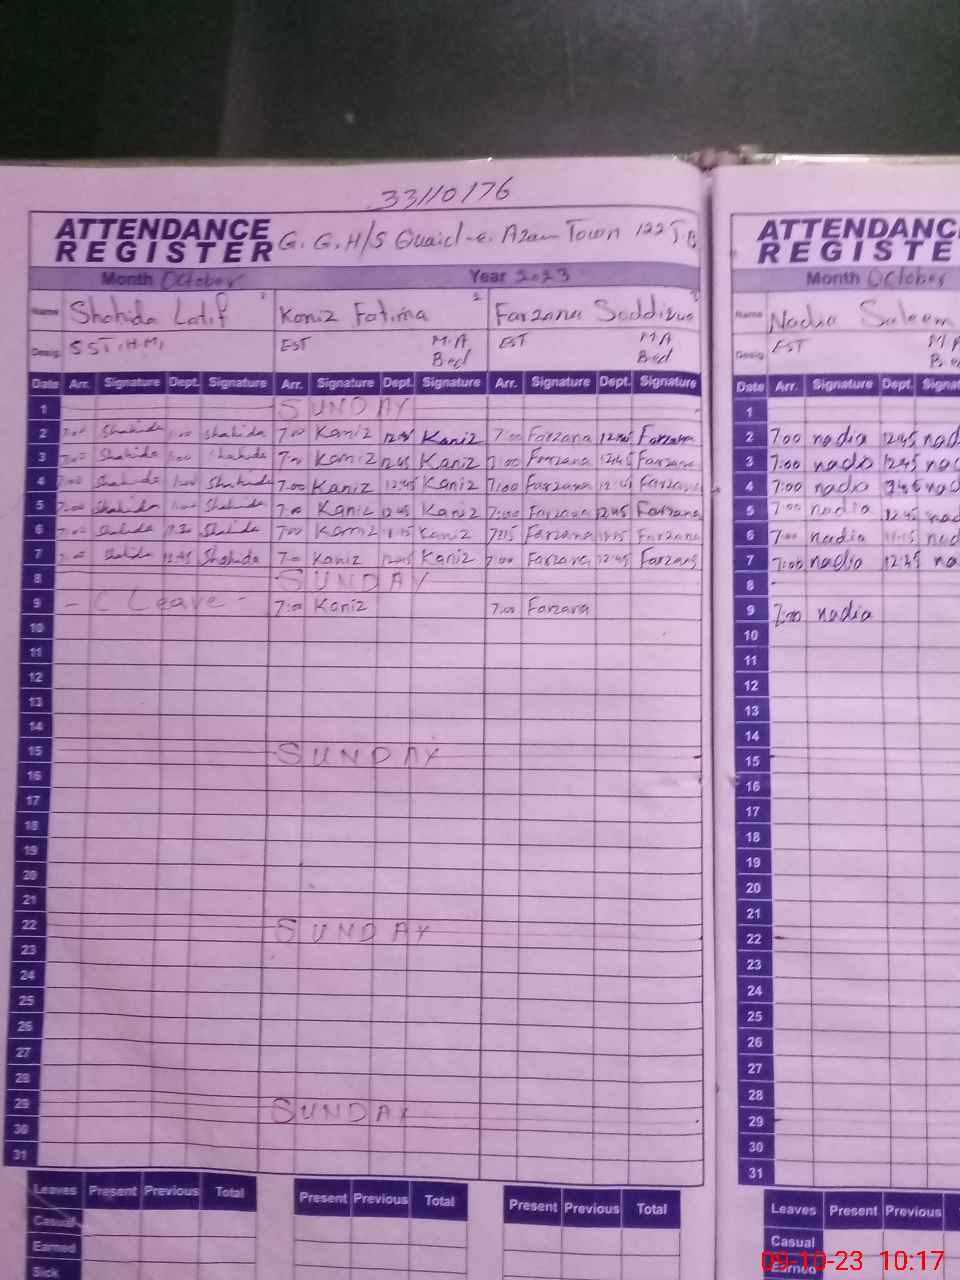 33110176
ATTENDANCE REGISTER G. G. H/S Quaid-e-Azam Town 122 J.B
Month October Year 2023
Name Shahida Latif Kaniz Fatima Farzana
Desig. SST.H.M. EST M.A B.ed EST M.A B.ed
Date Arr. Signature Dept. Signature Arr. Signature Dept. Signature Arr. Signature Dept. Signature
1 SUNDAY
2 7:00 Shahida 1:00 Shahida 7:00 Kaniz 12:45 Kaniz 7:00 Farzana 12:45 Farzana
3 7:00 Shahida 1:00 Shahida 7:00 Kaniz 12:45 Kaniz 7:00 Farzana 12:45 Farzana
4 7:00 Shahida 1:00 Shahida 7:00 Kaniz 12:45 Kaniz 7:00 Farzana 12:45 Farzana
5 7:00 Shahida 1:00 Shahida 7:00 Kaniz 12:45 Kaniz 7:00 Farzana 12:45 Farzana
6 7:00 Shahida Shahida 7:00 Kaniz 11:15 Kaniz 7:15 Farzana 11:15 Farzana
7 7:00 Shahida 12:45 Shahida 7:00 Kaniz 12:45 Kaniz 7:00 Farzana 12:45 Farzana
8 SUNDAY
9 - C Leave - 7:00 Kaniz 7:00 Farzana
10
11
12
13
14
15 SUNDAY
16
17
18
19
20
21
22 SUNDAY
23
24
25
26
27
28
29 SUNDAY
30
31
Leaves Present Previous Total Present Previous Total Present Previous Total
Casual
Earned
Sick
ATTENDANC
REGISTE
Month October
Name Nadia Saleem
Desig. EST M.A
B.ed
Date Arr. Signature Dept. Signat
1
2 7:00 nadia 12:45 nad
3 7:00 nadia 12:45 na
4 7:00 nadia 12:45 nad
5 7:00 nadia 12:45 nad
6 7:00 nadia 11:15 nad
7 7:00 nadia 12:45 na
8
9 7:00 nadia
10
11
12
13
14
15
16
17
18
19
20
21
22
23
24
25
26
27
28
29
30
31
Leaves Present Previous
Casual
Earned
09-10-23 10:17